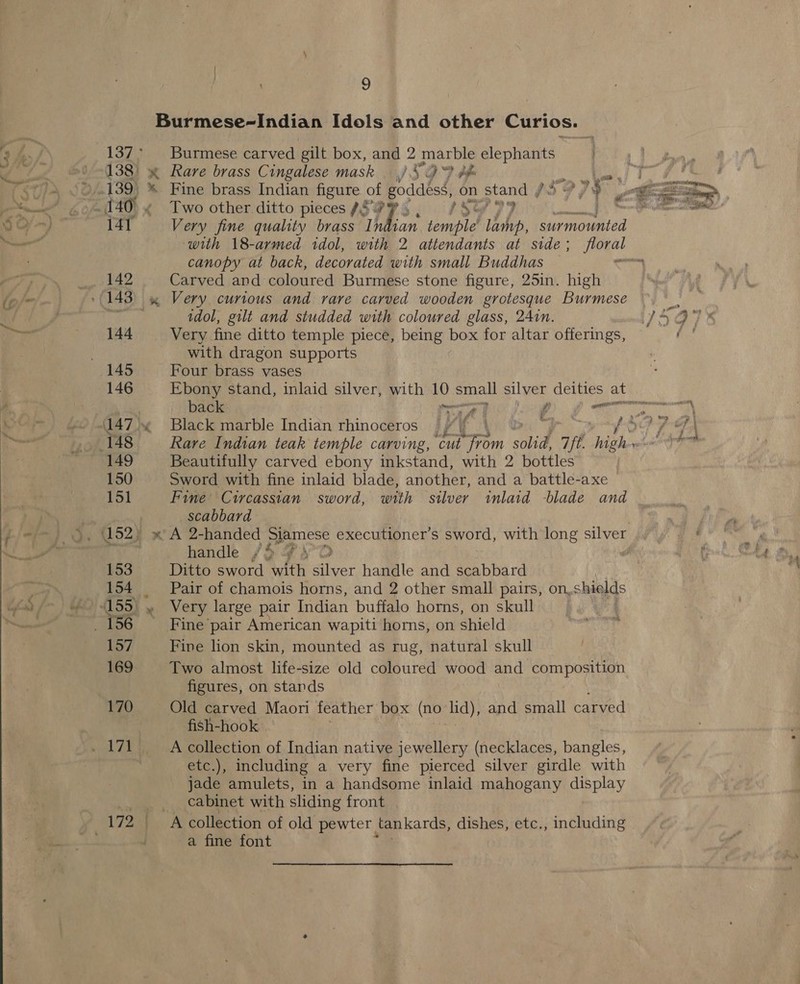 9
Burmese-Indian Idols and other Curios.
137 Burmese carved gilt box, and 2 marble elephants
138 x Rare brass Cingalese mask
139 x Fine brass Indian figure of goddess, on stand
140 x Two other ditto pieces
141 Very fine quality brass Indian temple lamp, surmounted
with 18-armed idol, with 2 attendants at side; floral
canopy at back, decorated with small Buddhas
142 Carved and coloured Burmese stone figure, 25in. high
143 x Very curious and rare carved wooden grotesque Burmese
idol, gilt and studded with coloured glass, 24in. 15978
144 Very fine ditto temple piece, being box for altar offerings,
with dragon supports
145 Four brass vases
146 Ebony stand, inlaid silver, with 10 small silver deities at
back
147 x Black marble Indian rhinoceros
148 Rare Indian teak temple carving, cut from solid, 7ft. high
149 Beautifully carved ebony inkstand, with 2 bottles
150 Sword with fine inlaid blade, another, and a battle-axe
151 Fine Circassian sword, with silver inlaid blade and
scabbard
152 x A 2-handed Siamese executioner's sword, with long silver
handle
153 Ditto sword with silver handle and scabbard
154 Pair of chamois horns, and 2 other small pairs, on shields
155 x Very large pair Indian buffalo horns, on skull
156 Fine pair American wapiti horns, on shield
157 Fine lion skin, mounted as rug, natural skull
169 Two almost life-size old coloured wood and composition
figures, on stands
170 Old carved Maori feather box (no lid), and small carved
fish-hook
171 A collection of Indian native jewellery (necklaces, bangles,
etc.), including a very fine pierced silver girdle with
jade amulets, in a handsome inlaid mahogany display
cabinet with sliding front
172 A collection of old pewter tankards, dishes, etc., including
a fine font